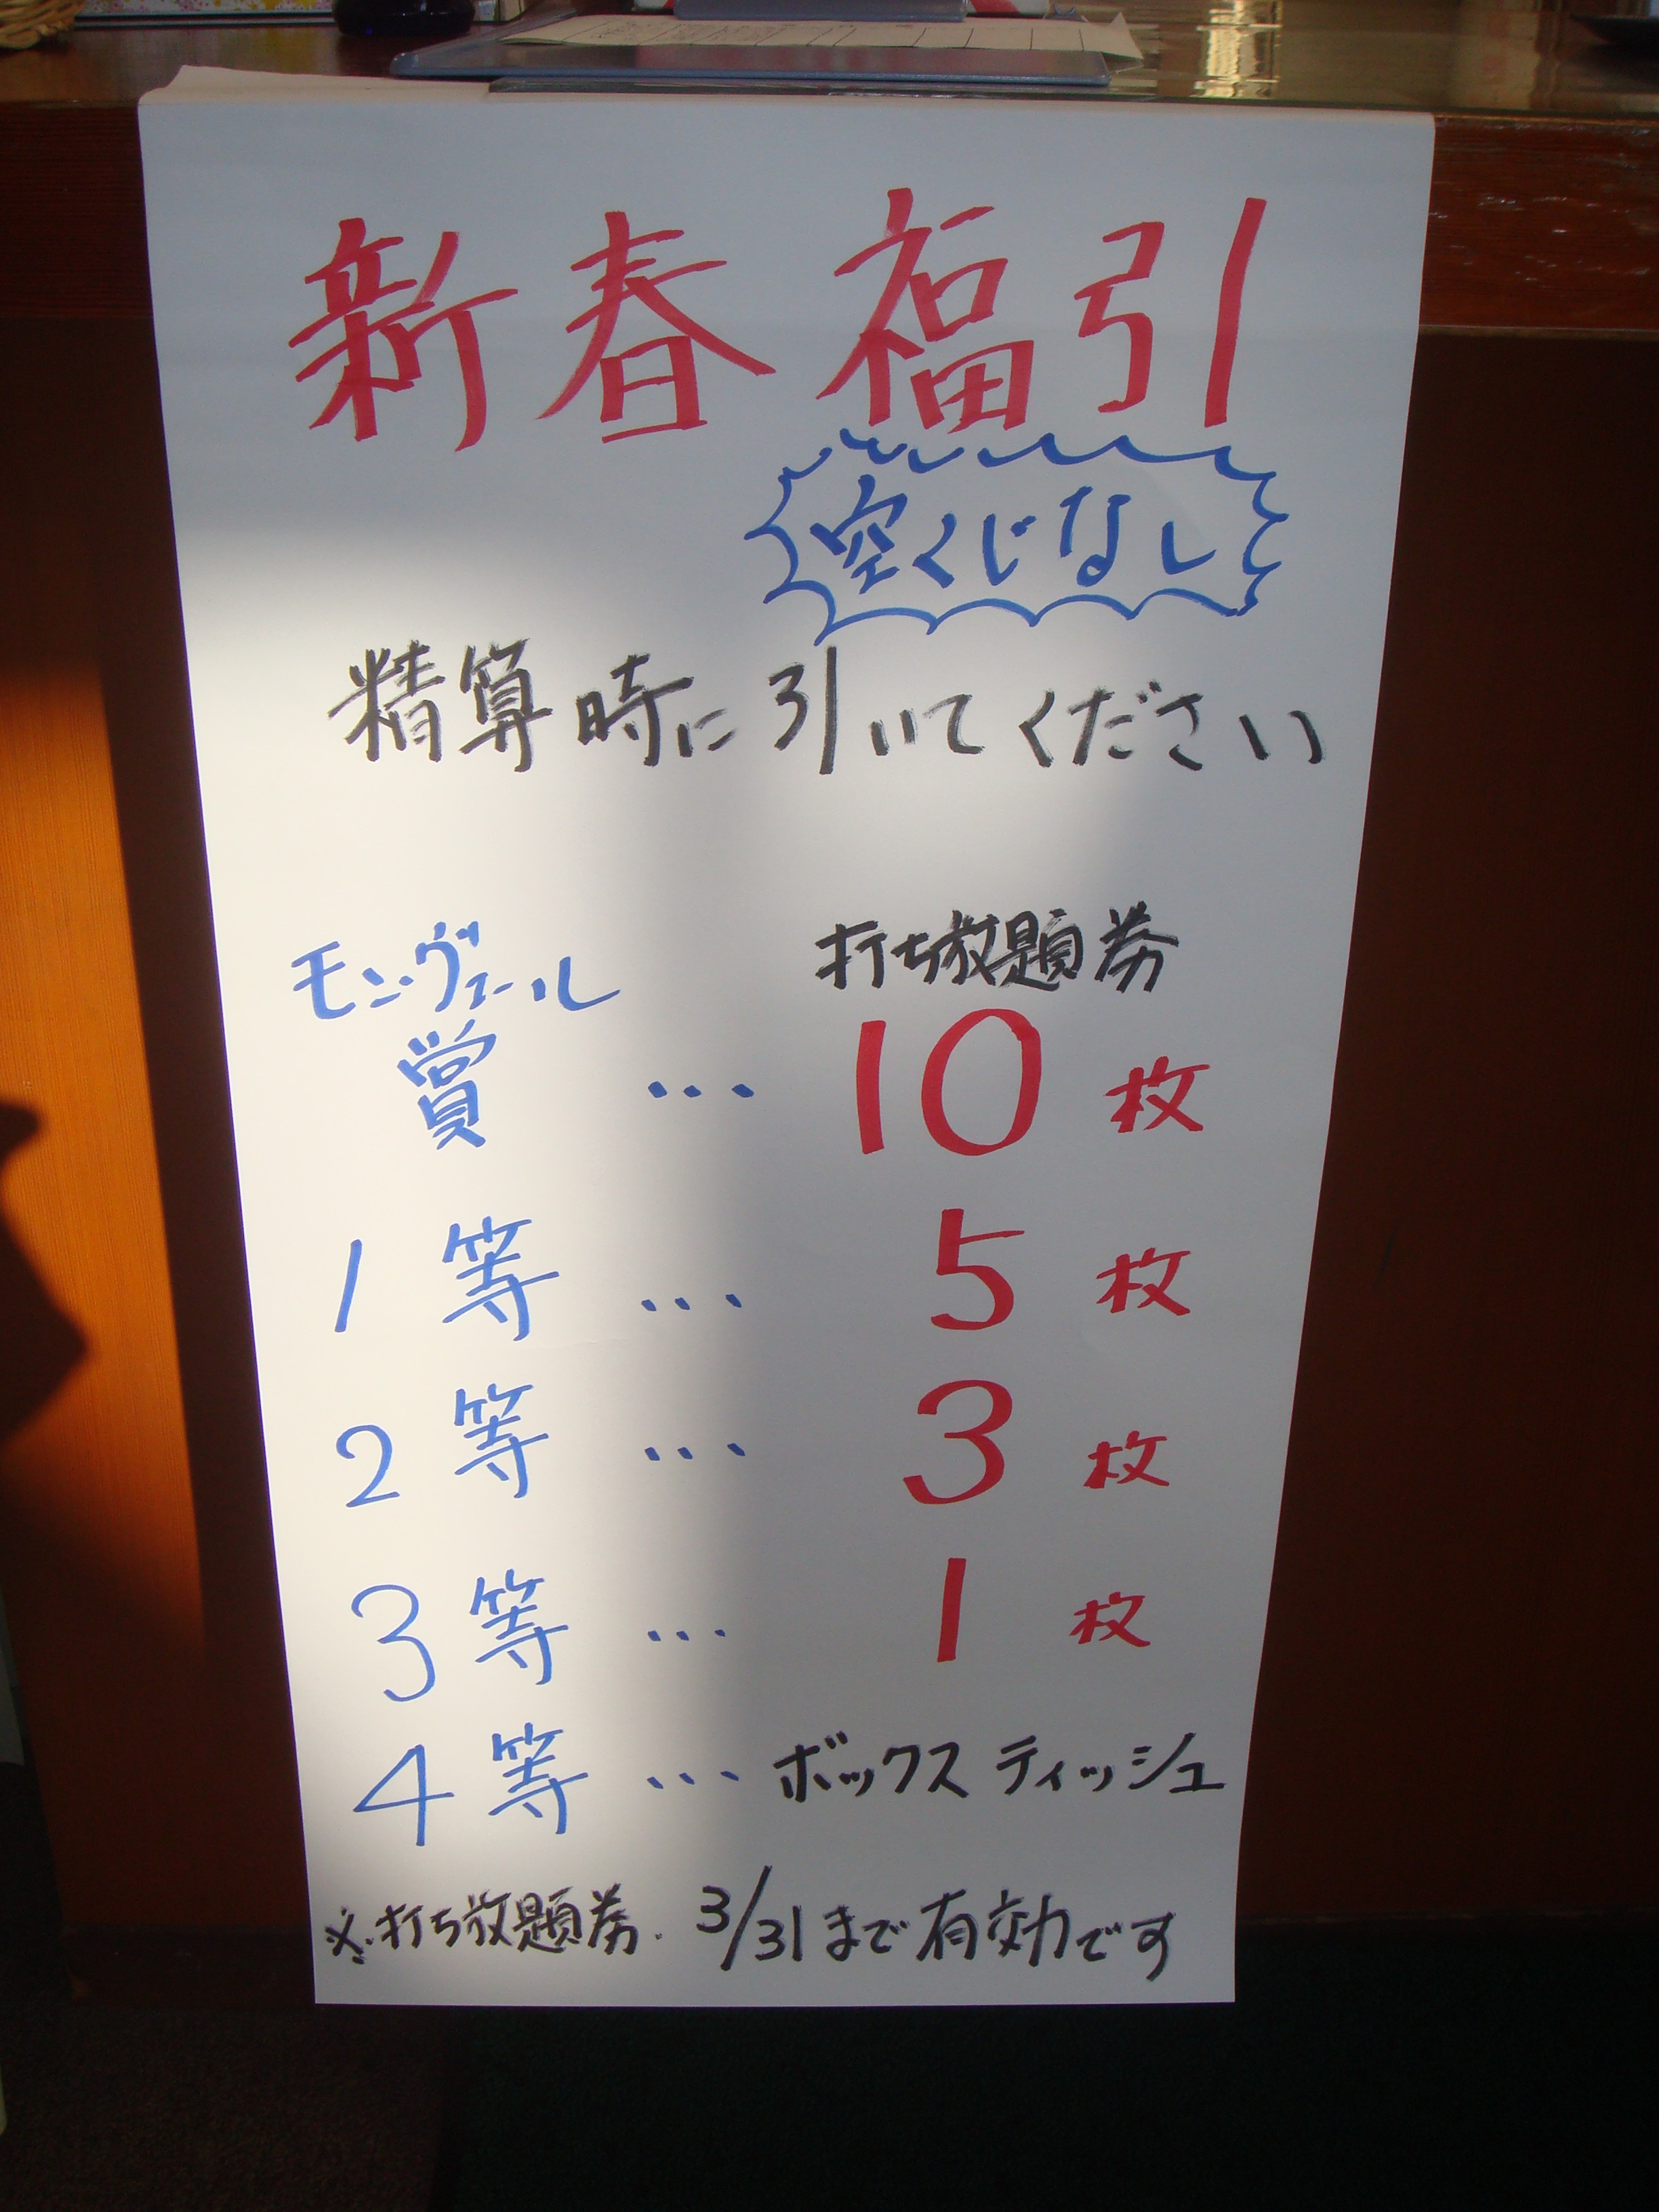 新春福引
空くじなし
精算時に引いてください
打ち放題券
モンヴェール賞 ... 10枚
1等 ... 5枚
2等 ... 3枚
3等 ... 1枚
4等 ... ボックスティッシュ
※打ち放題券. 3/31まで有効です